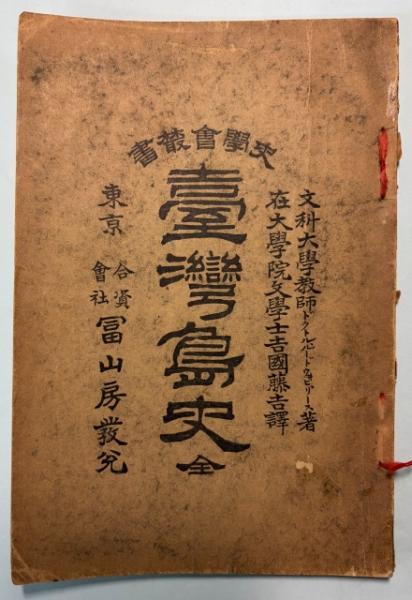 史學會叢書
文科大學教師ドクトル、ルードウィヒ、リース著
在大學院文學士吉國藤吉譯
臺灣島史 全
東京 合資會社 冨山房發兌